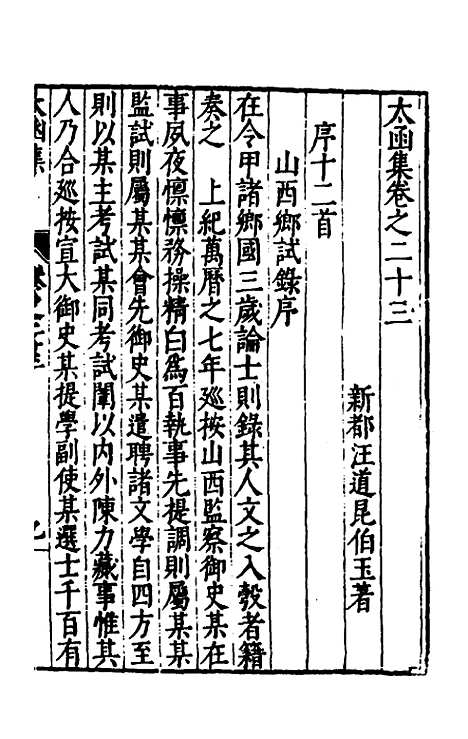 太函集卷之二十三
新都汪道昆伯玉著
序十二首
山西鄉試錄序
在令甲諸鄉國三歲論士則錄其人文之入彀者籍
奏之　上紀萬曆之七年廵按山西監察御史某在
事夙夜懔懔務操精白為百執事先提調則屬某某
監試則屬某某會先御史某遣聘諸文學自四方至
則以某主考試某同考試闈以內外陳力蕆事惟其
人乃合廵按宣大御史某提學副使某選士千百有
太函集